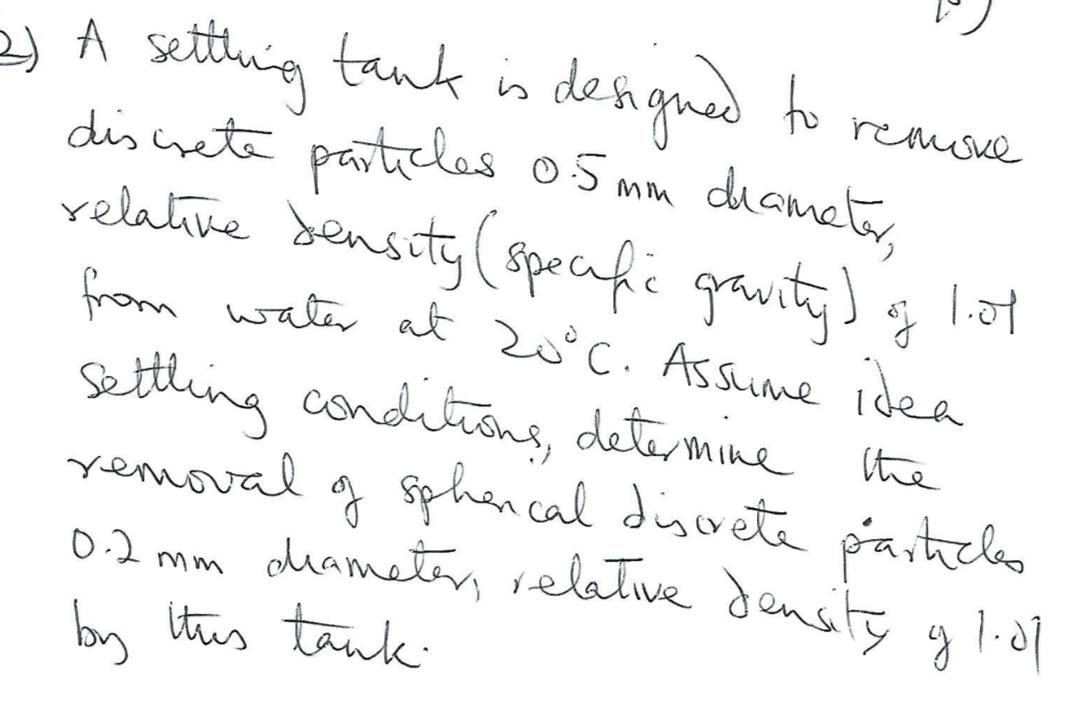 2) A settling tank is designed to remove
discrete particles 0.5 mm diameter,
relative density (specific gravity) of 1.01
from water at 20°C. Assume idea
settling conditions, determine the
removal of spherical discrete particles
0.2 mm diameter, relative density of 1.01
by this tank.